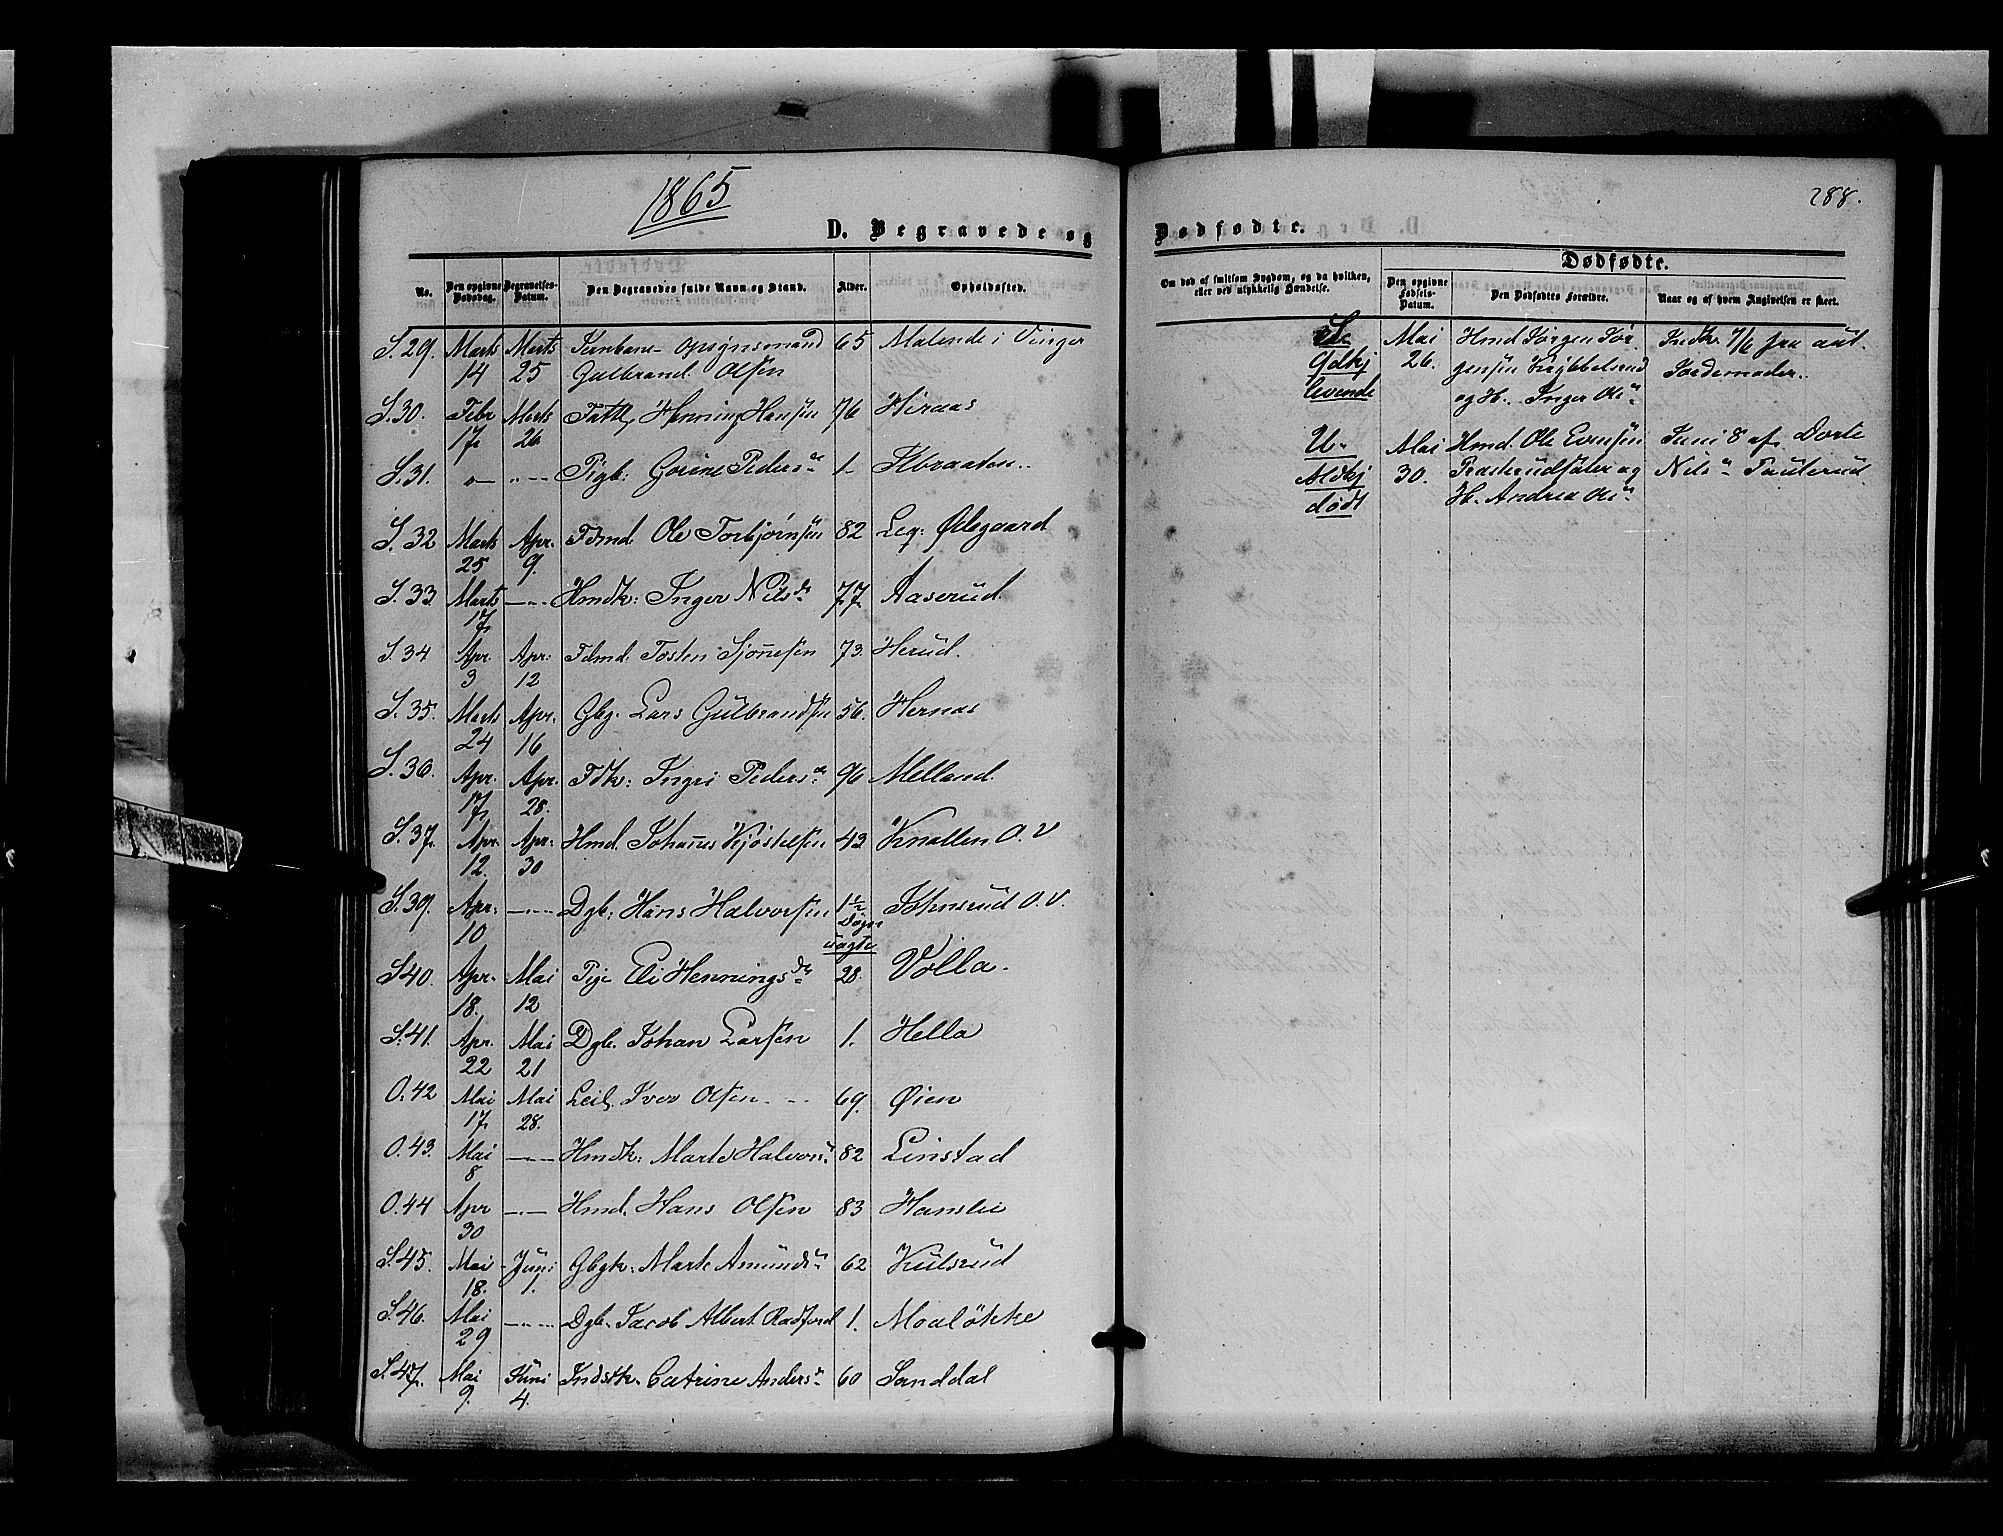 1865
288.
D. Begravede og Dødfødte.
No. Den opgivne Dødsdag. Begravelses-Datum. Den Begravedes fulde Navn og Stand. Alder. Opholdssted.
S. 29. Marts 14 Marts 25 opsynsmand Gulbrand Olsen 65 Malende i Vinger
S. 30. Febr 17 Marts 26 Henning Hansen 76 Hiraas
S. 31. Pigb: Peders
S. 32 Marts 25 Apr. 9. Fdmd. Ole Torbjørnsen 82 Leq: Ødegaard
S. 33. Marts 17 Hmdk: Inger Nils 77 Aaserud
S. 34 Apr. 3 Apr: 12 Fdmd. Tosten 73. Herud.
S. 35. Marts 24 Apr. 16 Gbg. Lars Gulbrandsen 56. Hernas
S. 36. Apr. 17 Apr. 28. Fdk: Ingri Peders 96 Melland.
S. 37. Apr. 12. Apr: 30 Hmd. Johanes Kjøstelsen 43 Knallen O. V
S. 39. Apr. 10 Dgb: Hans Halvorsen 1½ Døgn Johnsrud O. V.
S. 40. Apr. 18. Mai 12 Pige Eli Hennings 28. Volla.
S. 41. Apr. 22 Mai 21 Dgb. Johan Larsen 1. Hella
O. 42 Mai 17 Mai 28. Leil. Iver Olsen 69. Øien
O. 43. Mai 8 Hmdk: Marte Halvors 82 Linstad
O. 44 Apr 30 Hmd. Hans Olsen 83 Hanslie
S. 45. Mai 18. Juni 1. Gbgk: Marte Amunds 62 Kulsrud
S. 46. Mai 29 Dgb. Jacob Albert Radford 1. Moaløkke
S. 47. Mai 9. Juni 4. Indstk. Catrine Anders 60 Sanddal
Om død af smitsom Sygdom, og da hvilken, eller ved ulykkelig Hændelse.
Dødfødte.
Den opgivne Fødsels-Datum. Den Dødfødtes Forældre. Naar og af hvem Angivelsen er skeet.
levende Mai 26. Hmd Jørgen Jørgensen og H. Inger Ols Indk. 7/6 fra aut. Jordemoder.
U. dødt Mai 30. Hmd. Ole Evensen og H. Andrea Ols Juni 8 af Dorte Nils